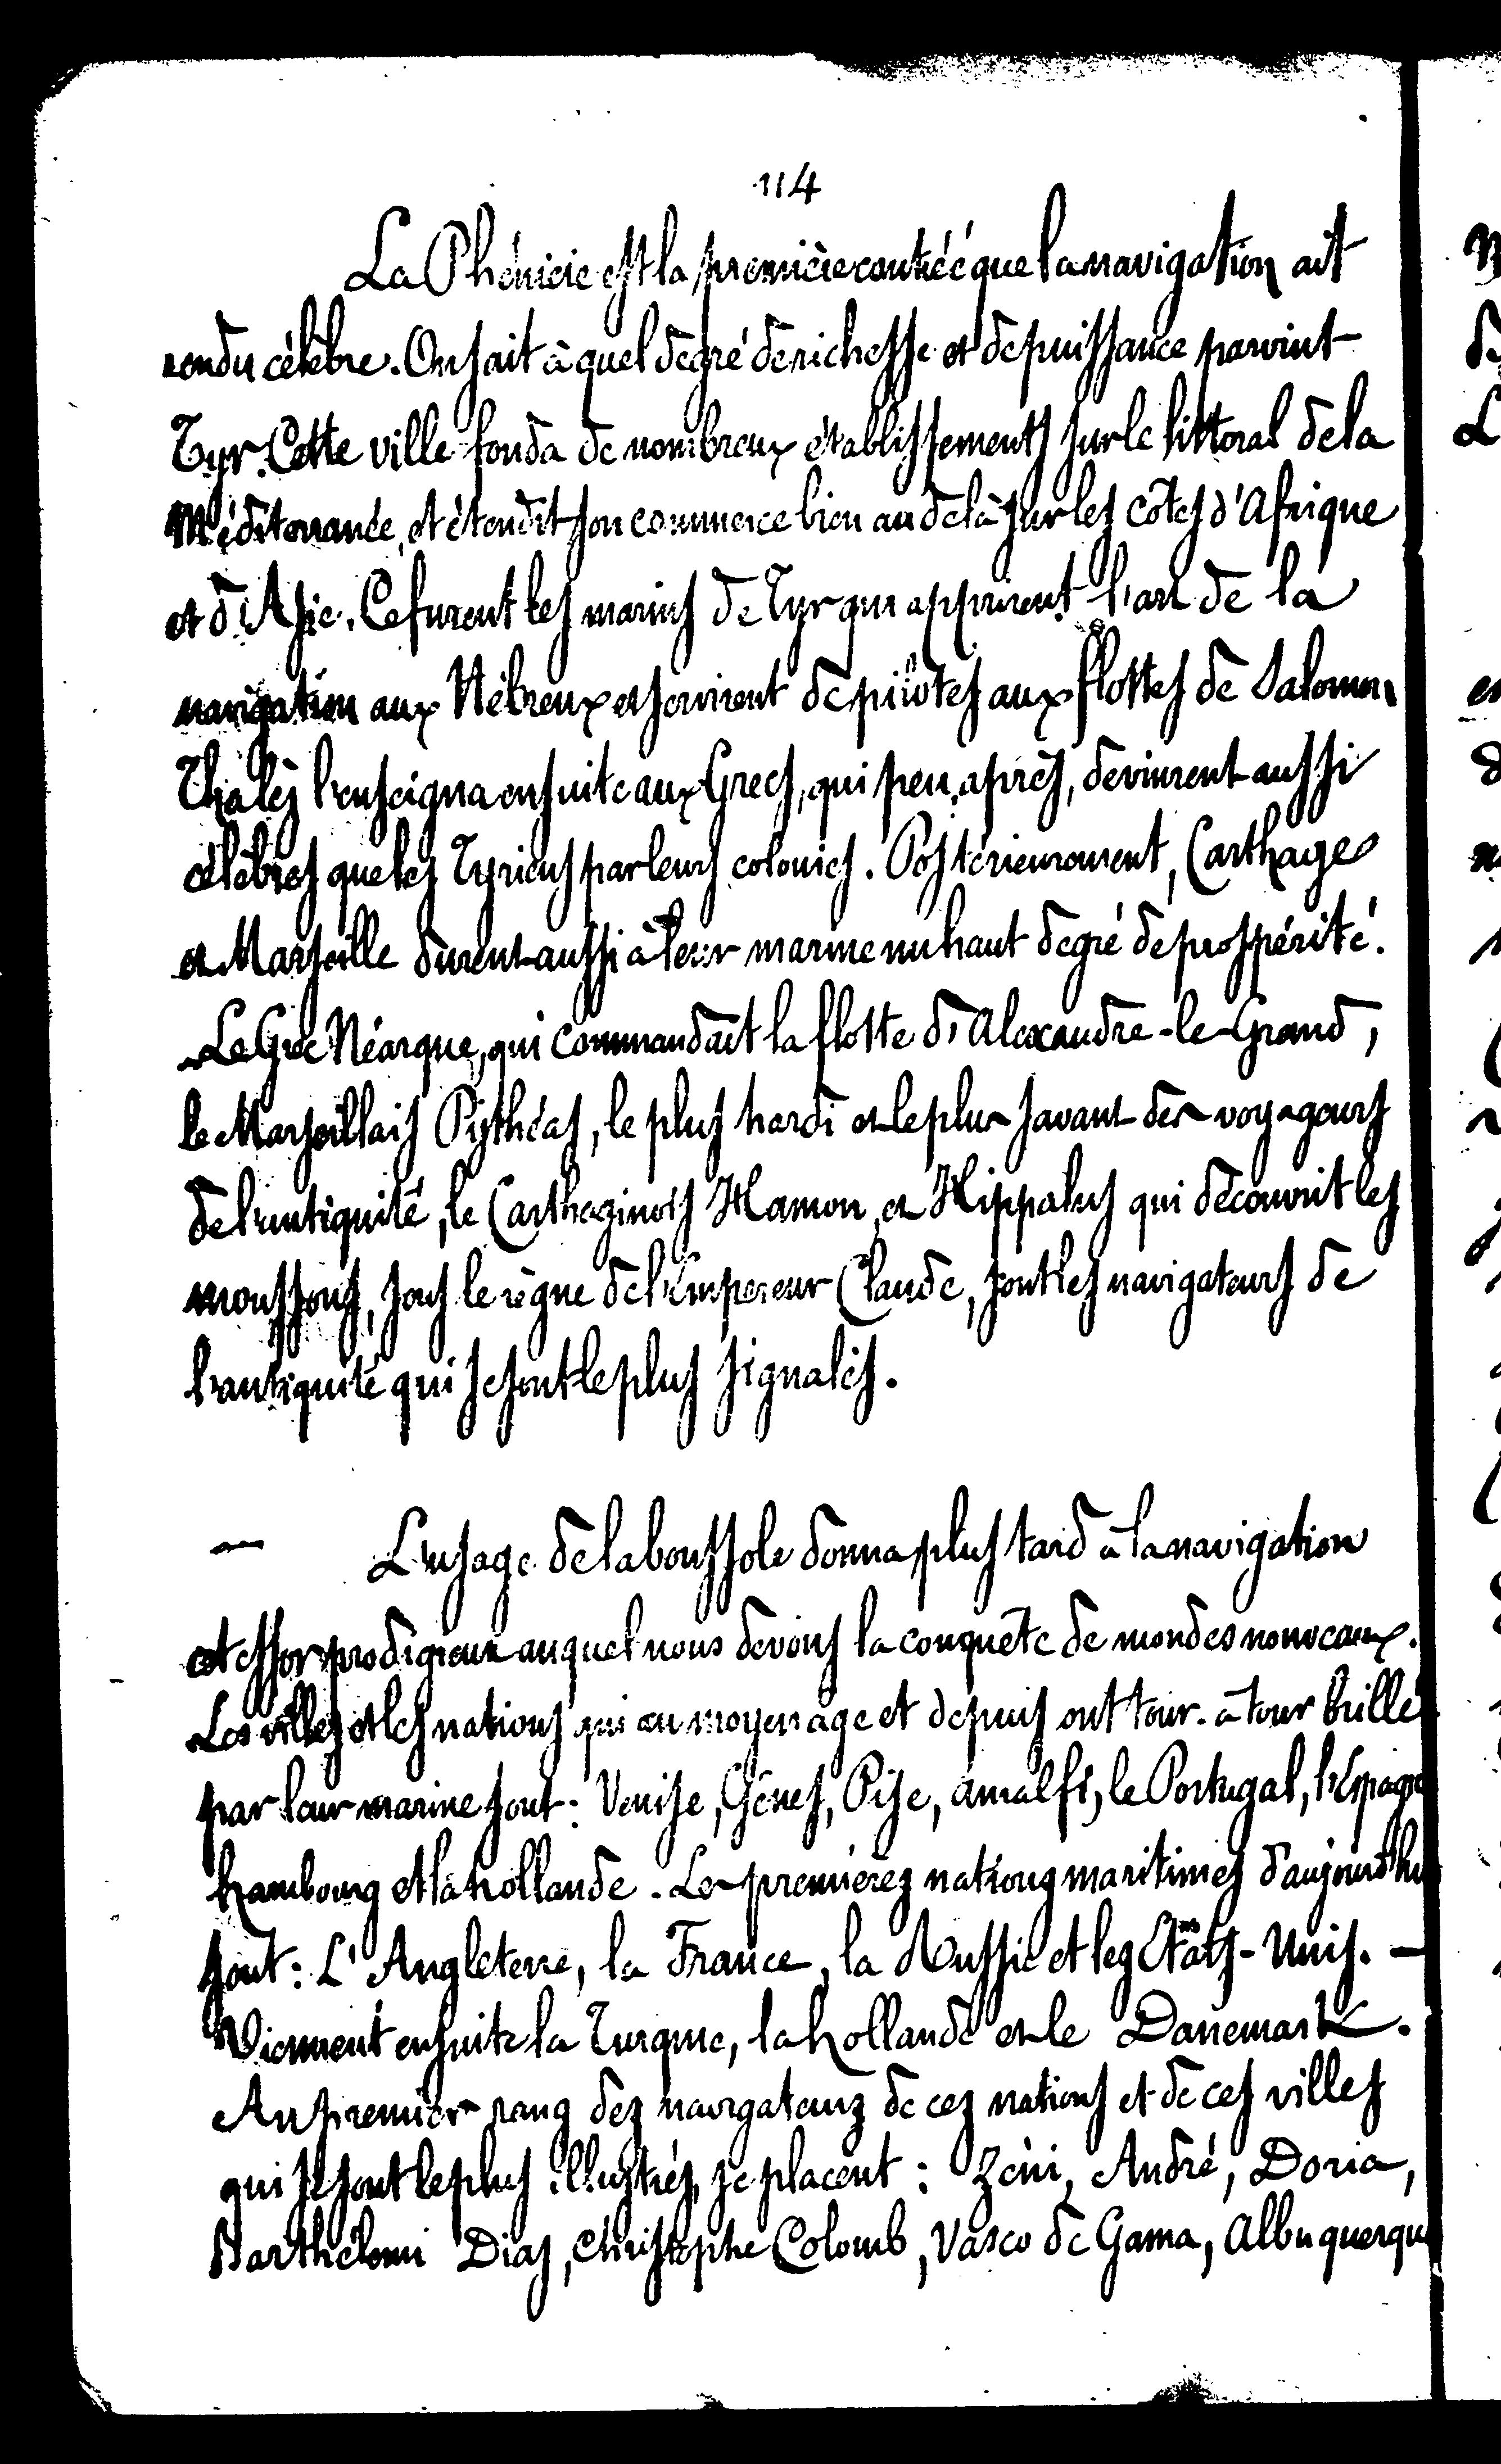 114
La Phénicie est la première contrée que la navigation ait
rendu célèbre. On sait à quel degré de richesse et de puissance parvint
Tyr. Cette ville fonda de nombreux établissements sur le littoral de la
Méditerranée, et étendit son commerce bien au delà sur les côtes d'Afrique
et d'Asie. Ce furent les marins de Tyr qui apprirent l'art de la
navigation aux Hébreux et servirent de pilotes aux flottes de Salomon.
Thalès l'enseigna ensuite aux Grecs, qui peu après, devinrent aussi
célèbres que les Tyriens par leurs colonies. Postérieurement, Carthage
et Marseille durent aussi à leur marine un haut degré de prospérité.
Le Grec Néarque, qui commandait la flotte d'Alexandre-le-Grand,
le Marseillais Pythéas, le plus hardi et le plus savant des voyageurs
de l'antiquité, le Carthaginois Hamon, et Hippalus qui découvrit les
moussons, sous le règne de l'Empereur Claude, sont les navigateurs de
l'antiquité qui se sont le plus signalés.
— L'usage de la boussole donna plus tard à la navigation
cet essor prodigieux auquel nous devons la conquête de mondes nouveaux.
Les villes et les nations qui au moyen âge et depuis ont tour-à tour brillé
par leur marine sont : Venise, Gênes, Pise, Amalfi, le Portugal, l'Espagne
hambourg et la hollande. Les premières nations maritimes d'aujourd'hu
sont : L'Angleterre, la France, la Russie et les Etats-Unis. —
Viennent ensuite la Turquie, la hollande et le Danemark.
Au premier rang des navigateurs de ces nations et de ces villes
qui se sont le plus illustrés, se placent : Zéni, André, Doria,
Barthélemi Dias, Christophe Colomb, Vasco de Gama, Albuquerqu